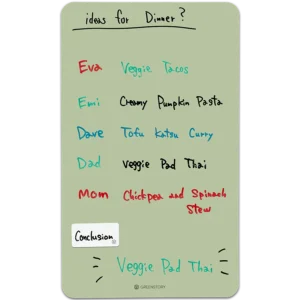 ideas for Dinner?
Eva Veggie Tacos
Emi Creamy Pumpkin Pasta
Dave Tofu Katsu Curry
Dad Veggie Pad Thai
Mom Chickpea and Spinach
Stew
Conclusion
Veggie Pad Thai
GREENSTORY